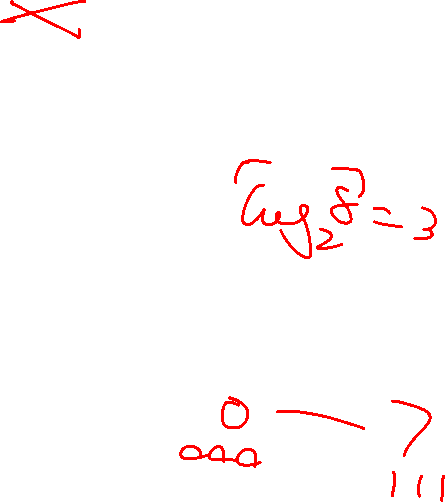 ⌈log₂8⌉ = 3
0 — 7
000 111